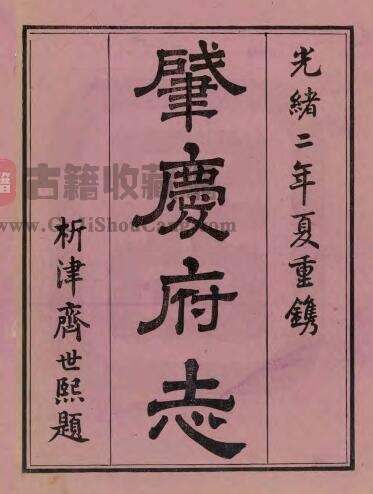 光緒二年夏重鐫
肇慶府志
析津齊世熙題
古籍收藏
www.GujiShouCang.com